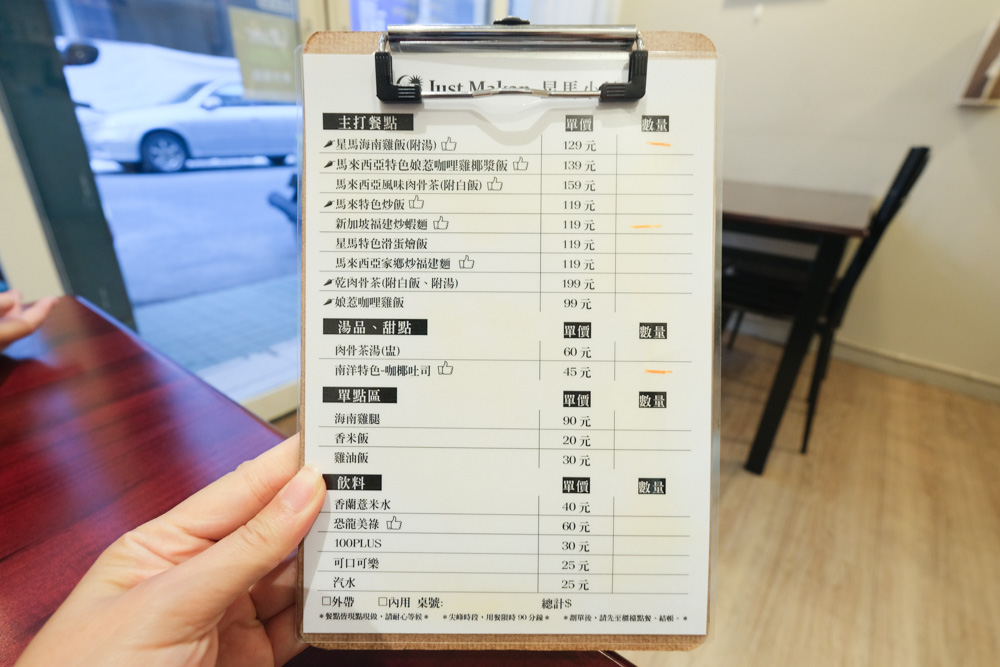 Just Maker 星馬小
主打餐點 單價 數量
星馬海南雞飯(附湯) 129 元
馬來西亞特色娘惹咖哩雞椰漿飯 139 元
馬來西亞風味肉骨茶(附白飯) 159 元
馬來特色炒飯 119 元
新加坡福建炒蝦麵 119 元
星馬特色滑蛋燴飯 119 元
馬來西亞家鄉炒福建麵 119 元
乾肉骨茶(附白飯、附湯) 199 元
娘惹咖哩雞飯 99 元
湯品、甜點 單價 數量
肉骨茶湯(盅) 60 元
南洋特色-咖椰吐司 45 元
單點區 單價 數量
海南雞腿 90 元
香米飯 20 元
雞油飯 30 元
飲料 單價 數量
香蘭薏米水 40 元
恐龍美祿 60 元
100PLUS 30 元
可口可樂 25 元
汽水 25 元
☐外帶 ☐內用 桌號: 總計$
*餐點皆現點現做,請耐心等候* *尖峰時段,用餐限時 90 分鐘* *劃單後,請先至櫃檯點餐、結帳。*